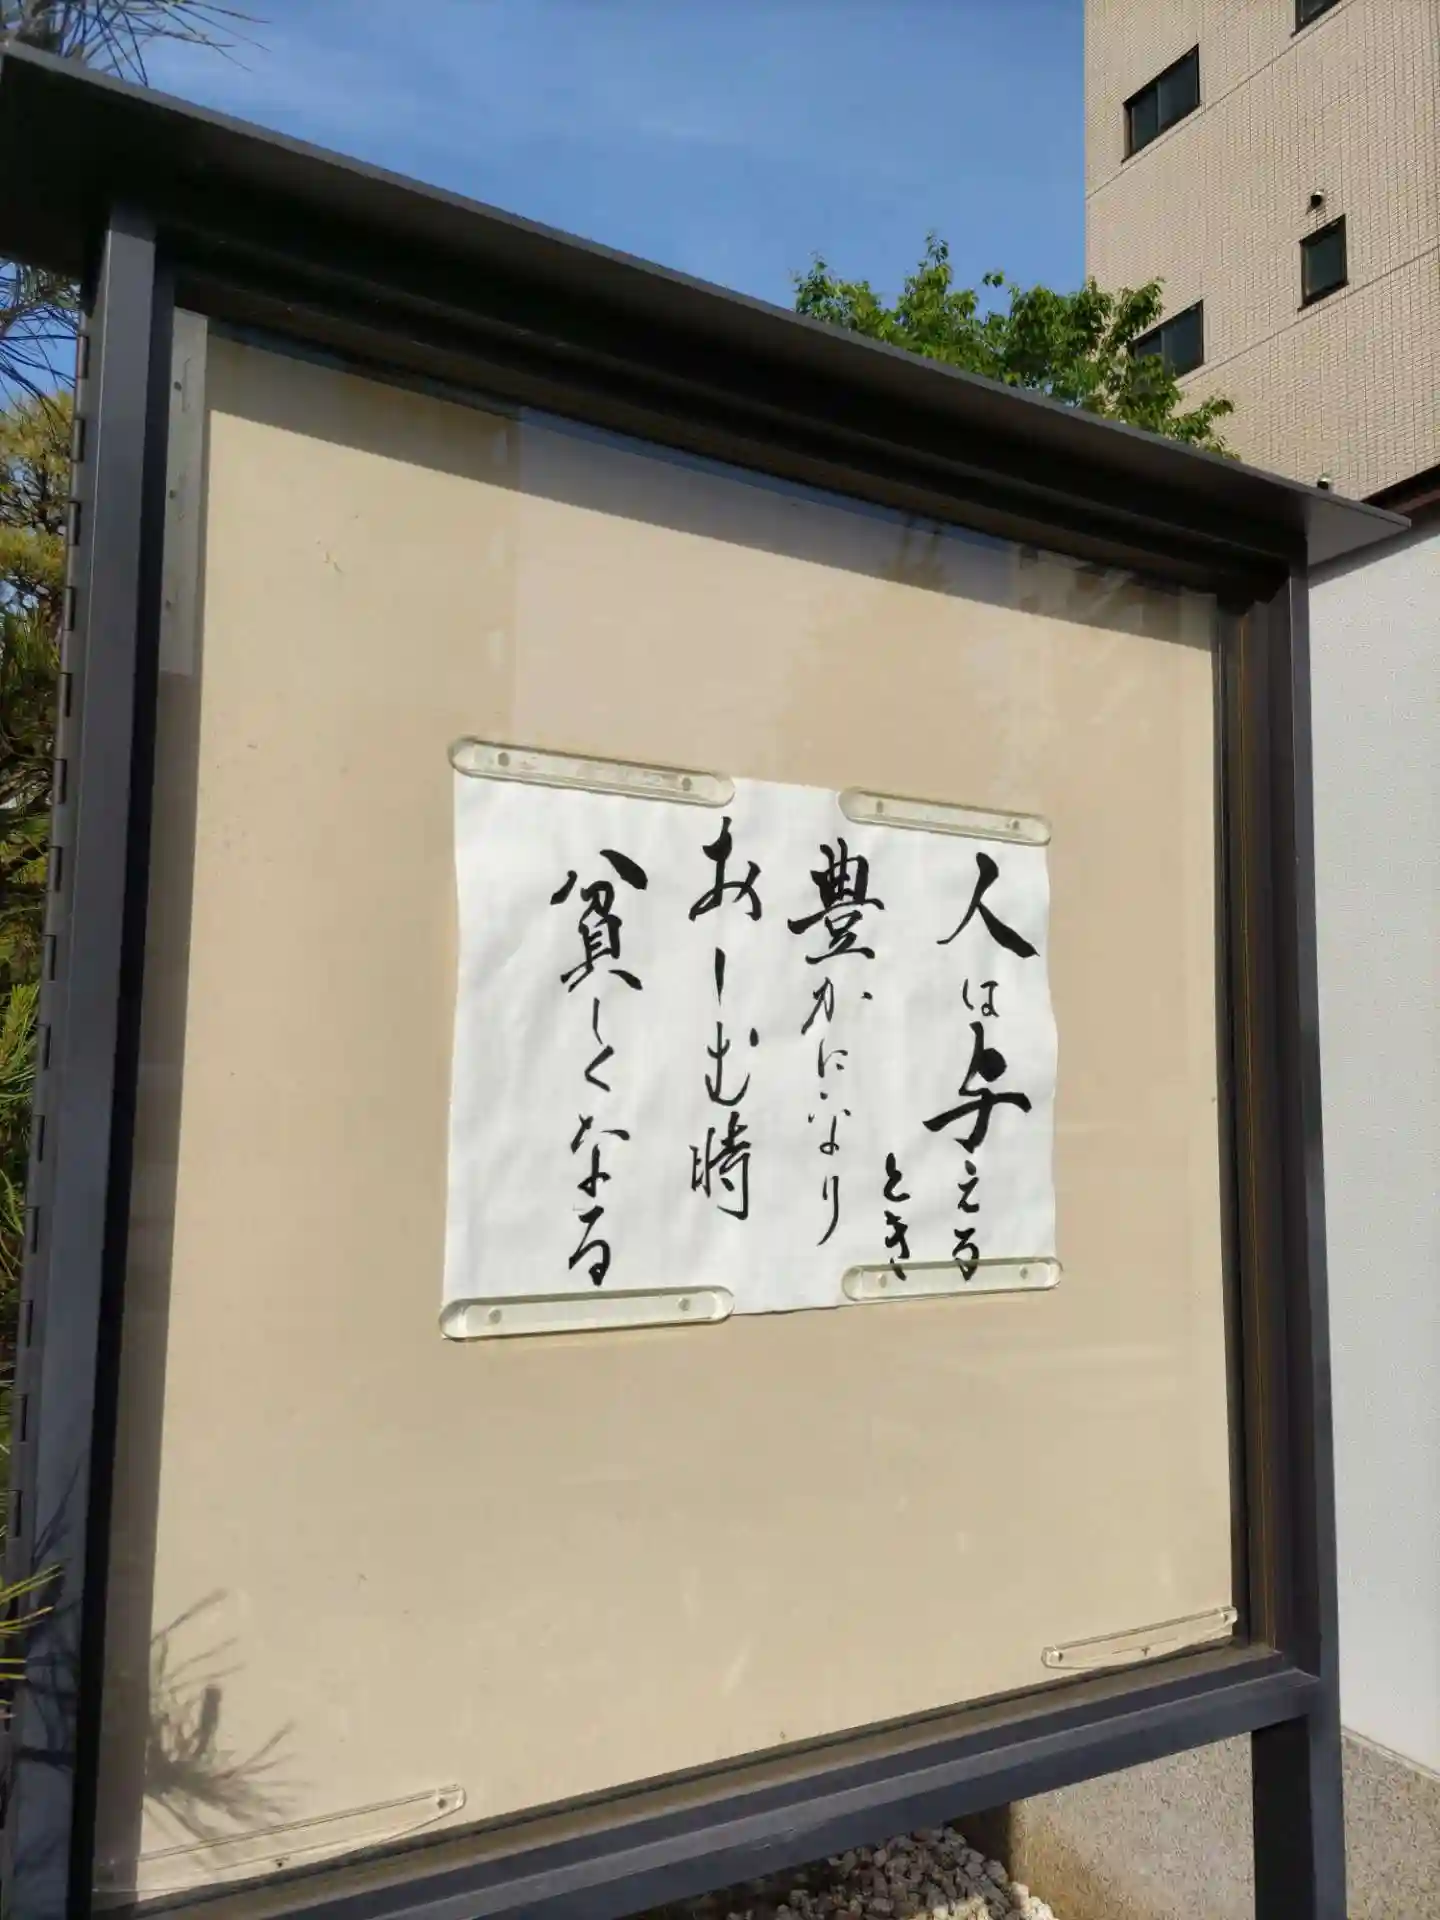 人は与える
とき
豊かになり
おしむ時
貧しくなる